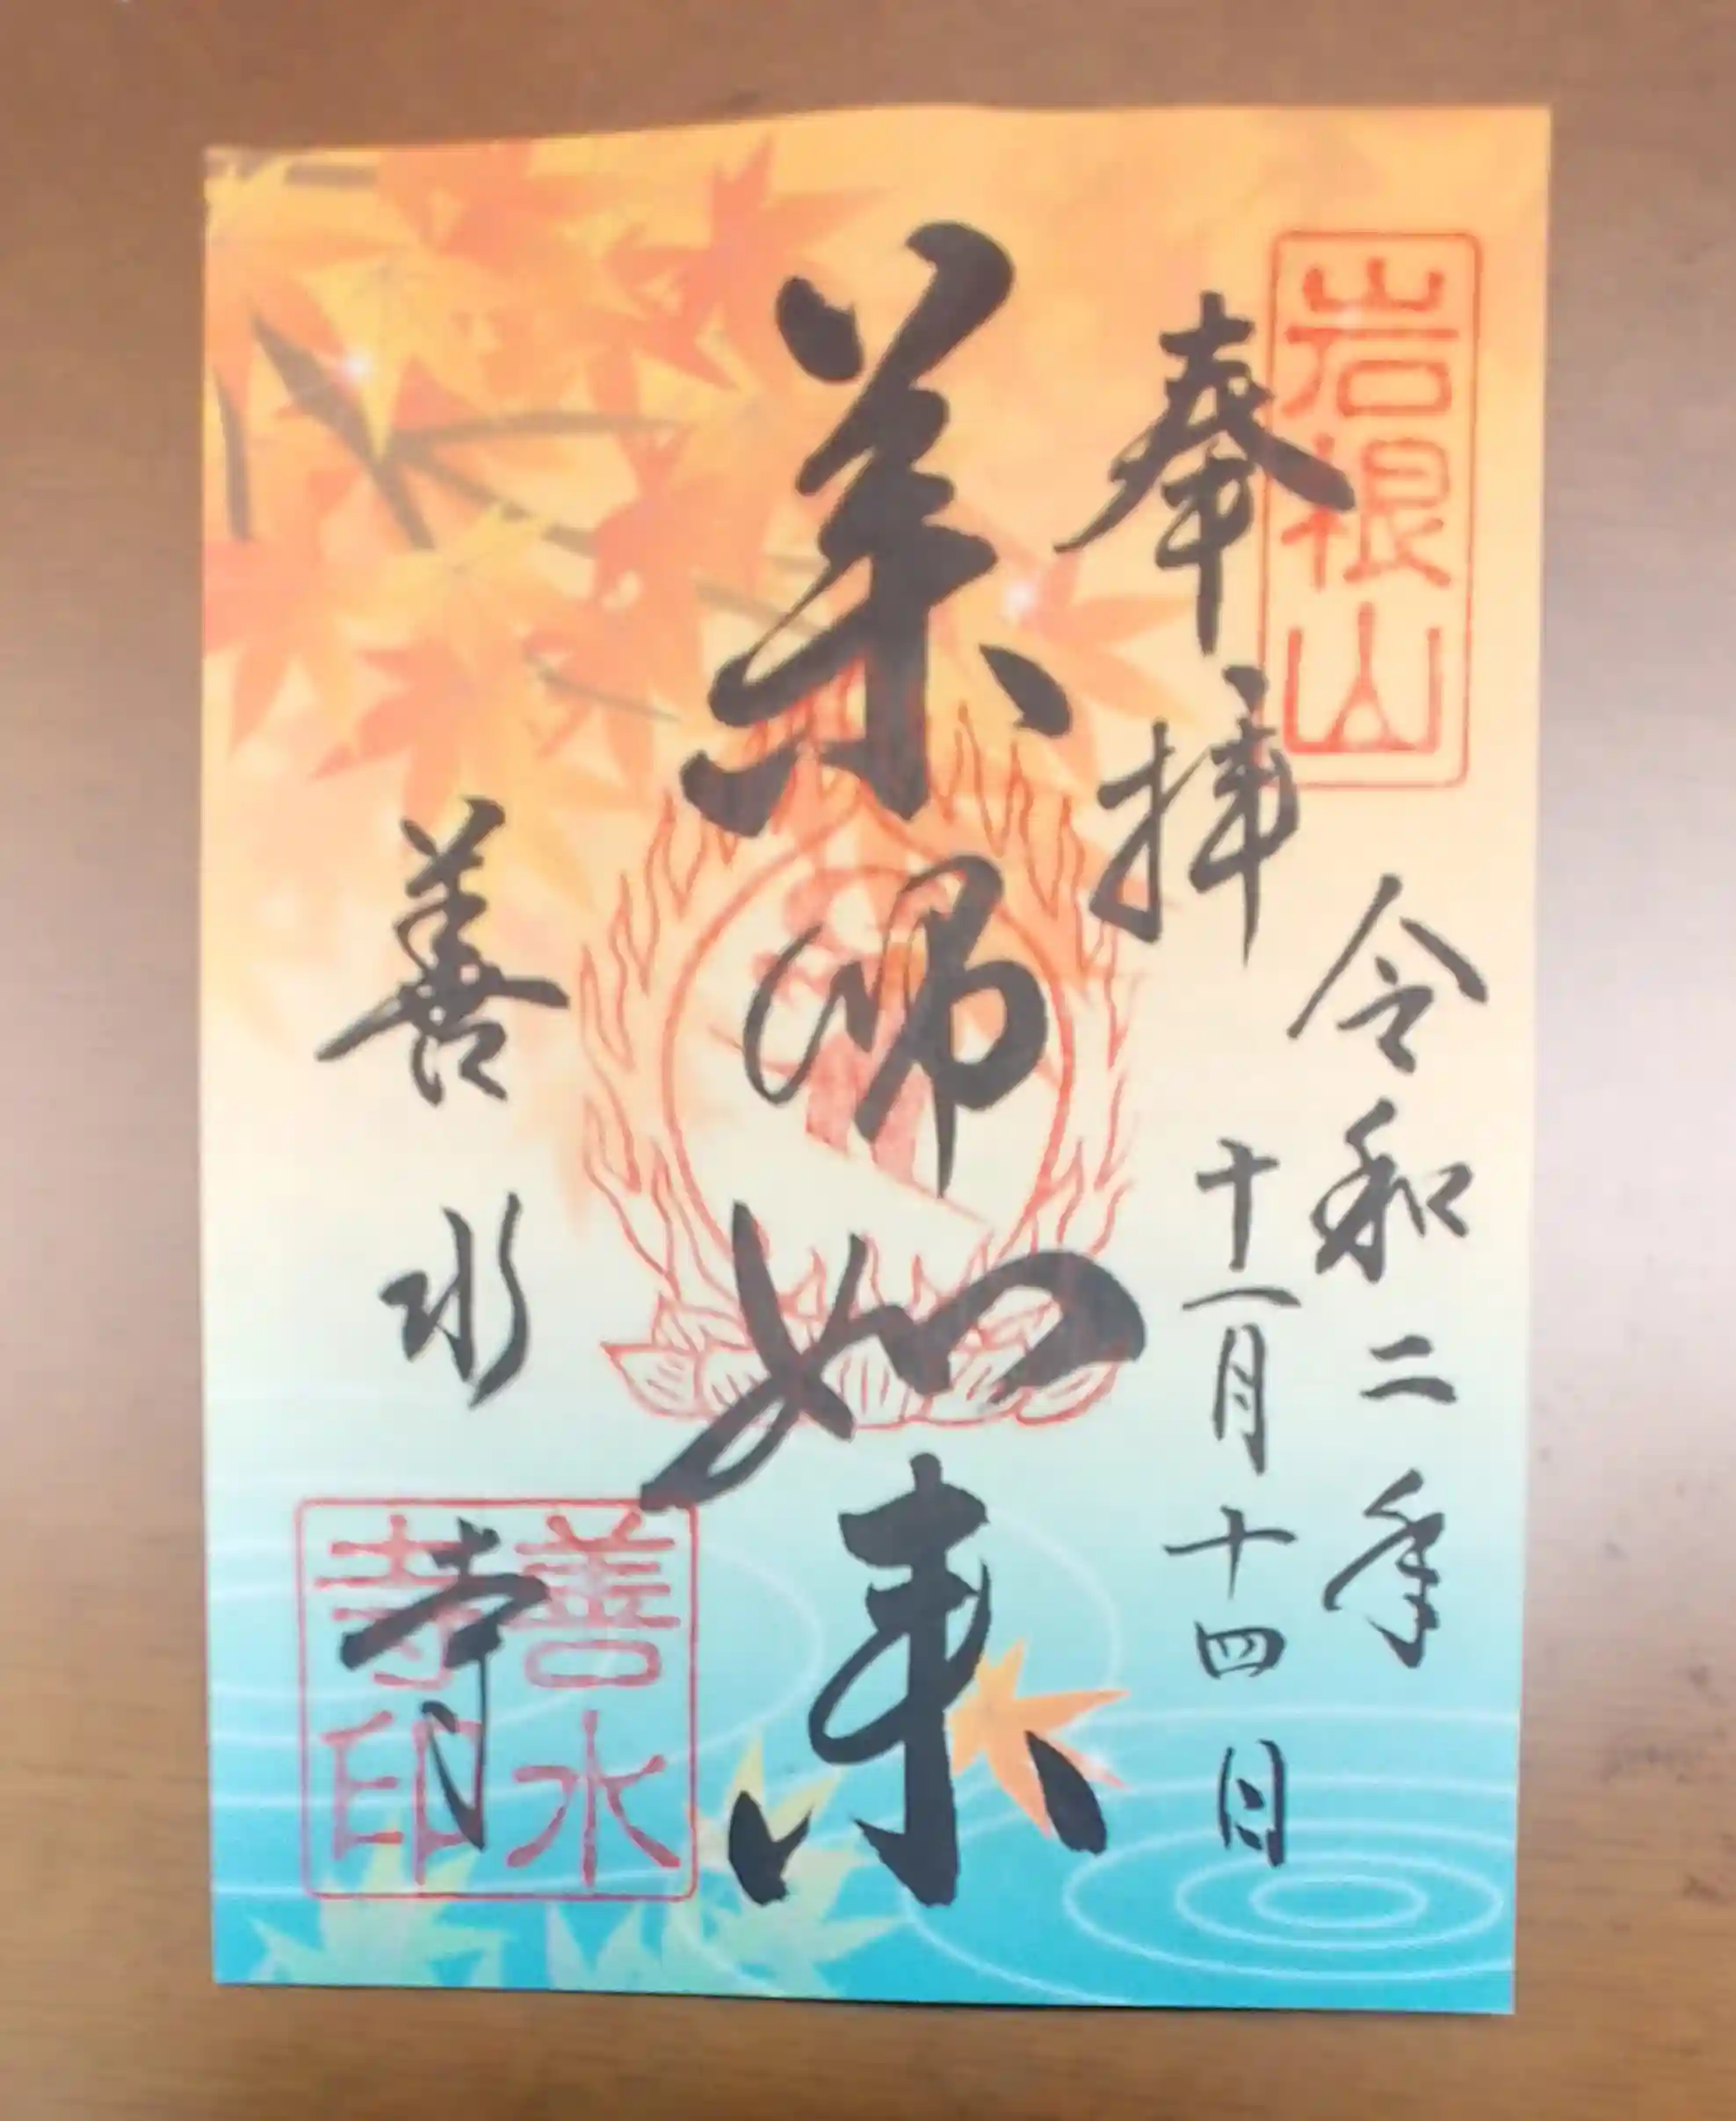 岩根山
奉拝
令和二年
十一月十四日
薬師如来
善水寺
善水寺印